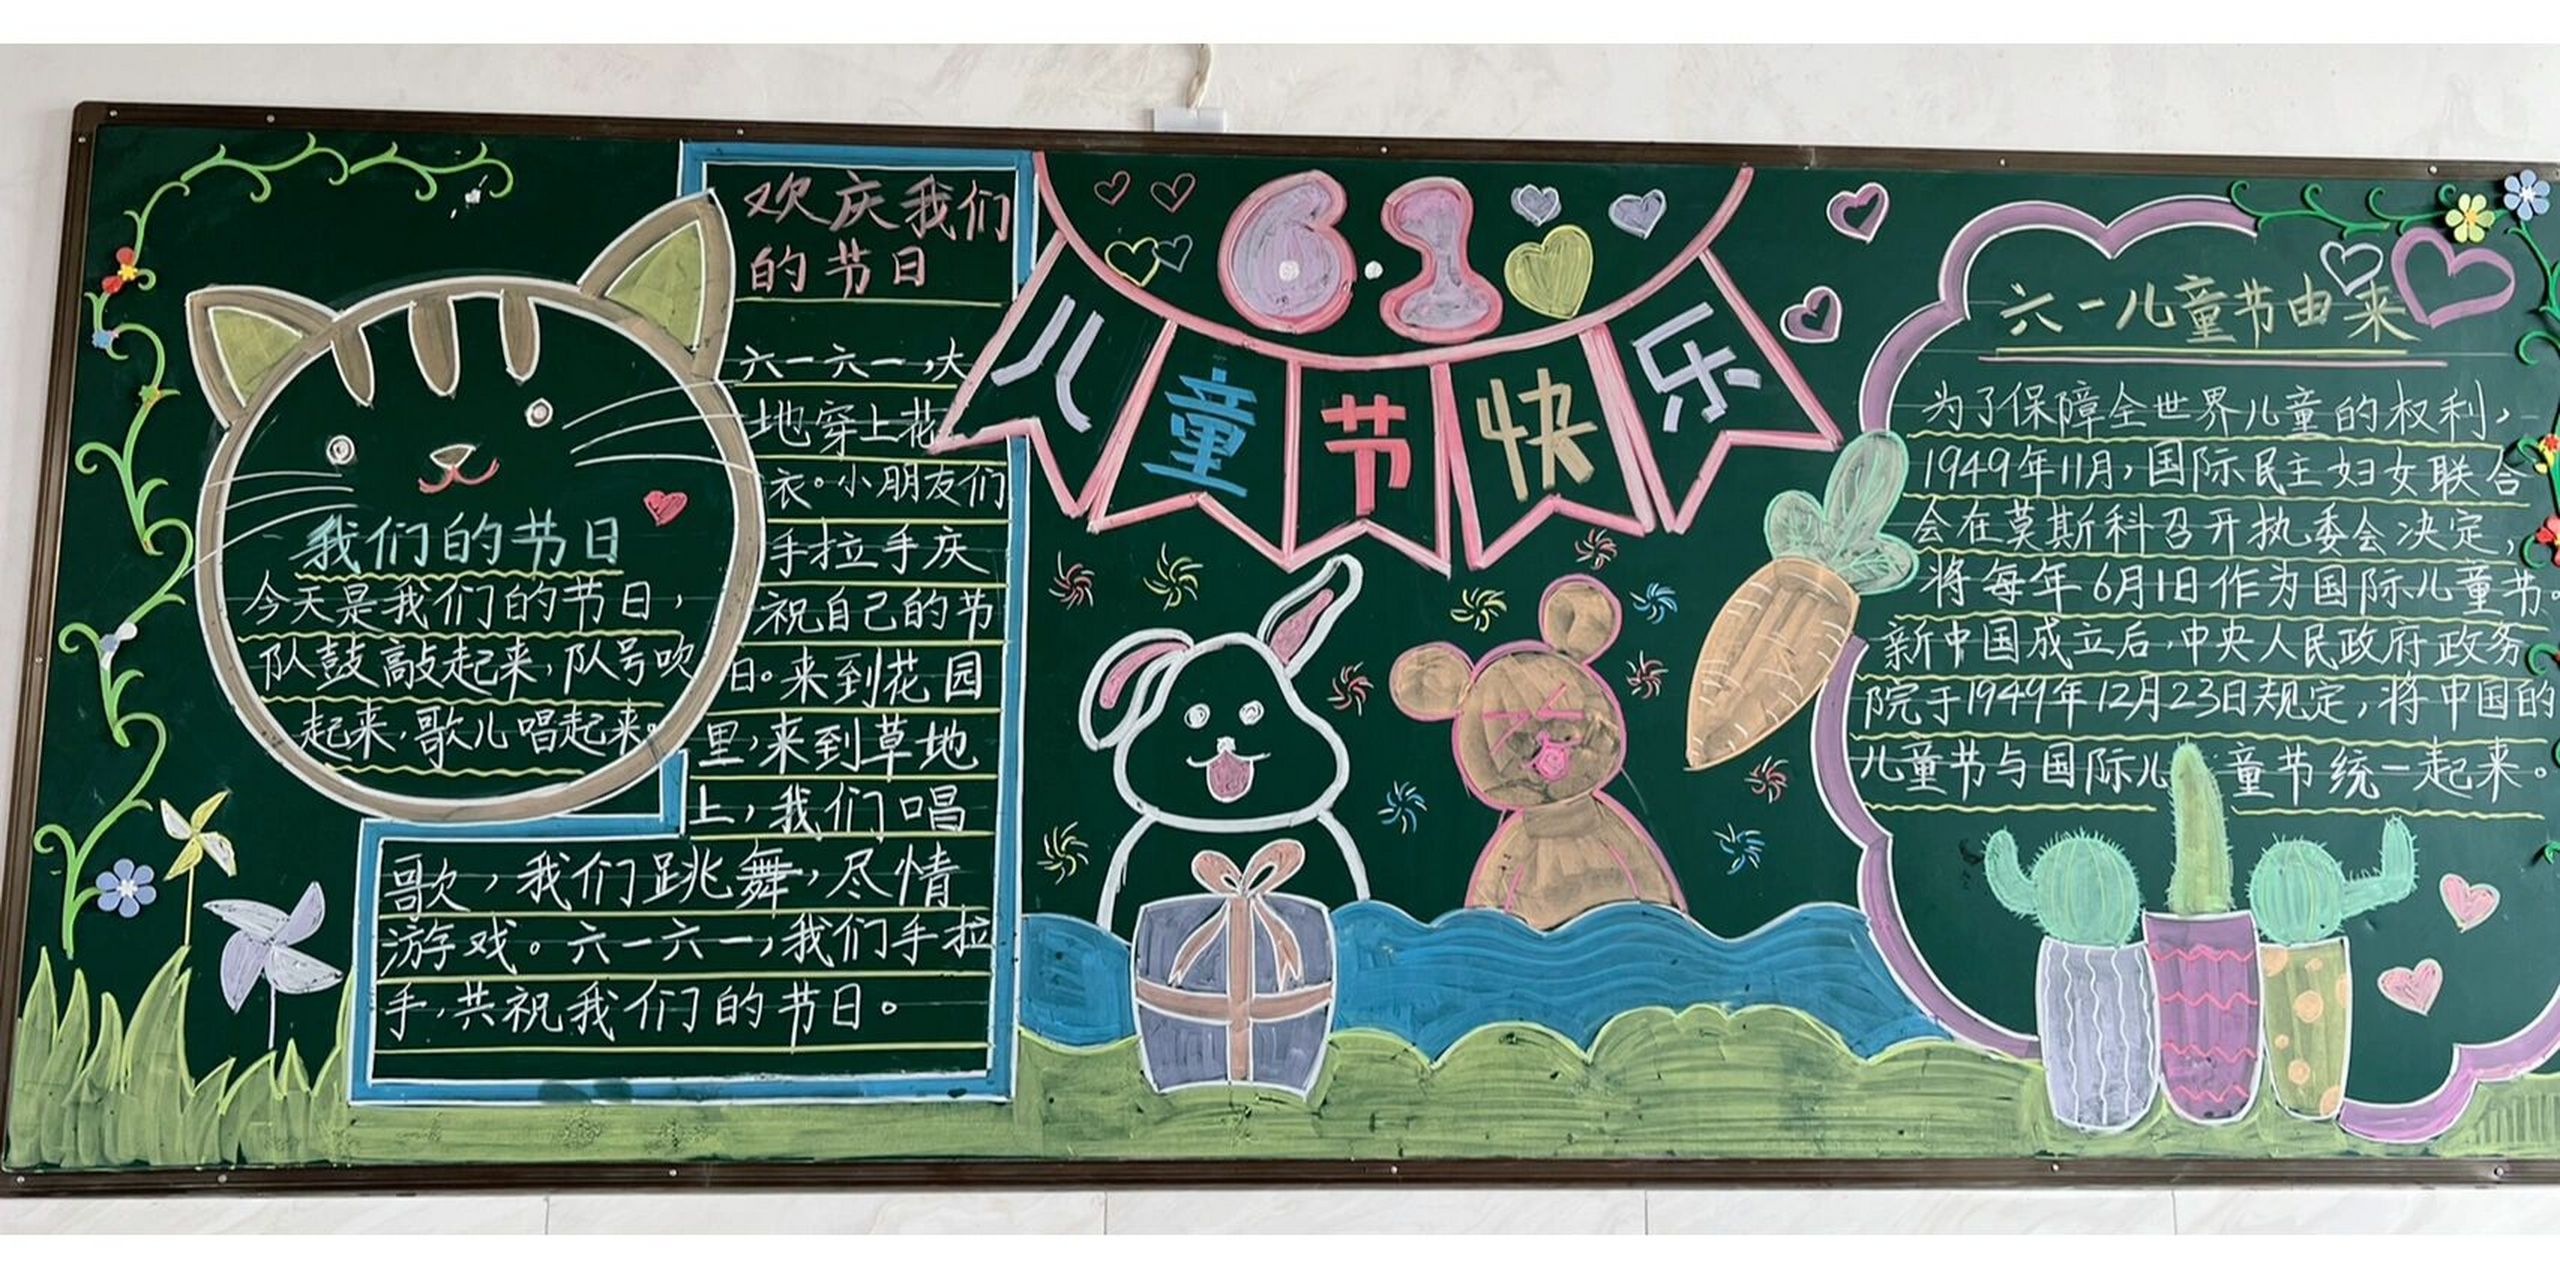 我们的节日
今天是我们的节日，
队鼓敲起来，队号吹
起来，歌儿唱起来。
欢庆我们
的节日
六一六一，大
地穿上花
衣。小朋友们
手拉手庆
祝自己的节
日。来到花园
里，来到草地
上，我们唱
歌，我们跳舞，尽情
游戏。六一六一，我们手拉
手，共祝我们的节日。
6.1
儿童节快乐
六一儿童节由来
为了保障全世界儿童的权利，
1949年11月，国际民主妇女联合
会在莫斯科召开执委会决定，
将每年6月1日作为国际儿童节。
新中国成立后，中央人民政府政务
院于1949年12月23日规定，将中国的
儿童节与国际儿童节统一起来。